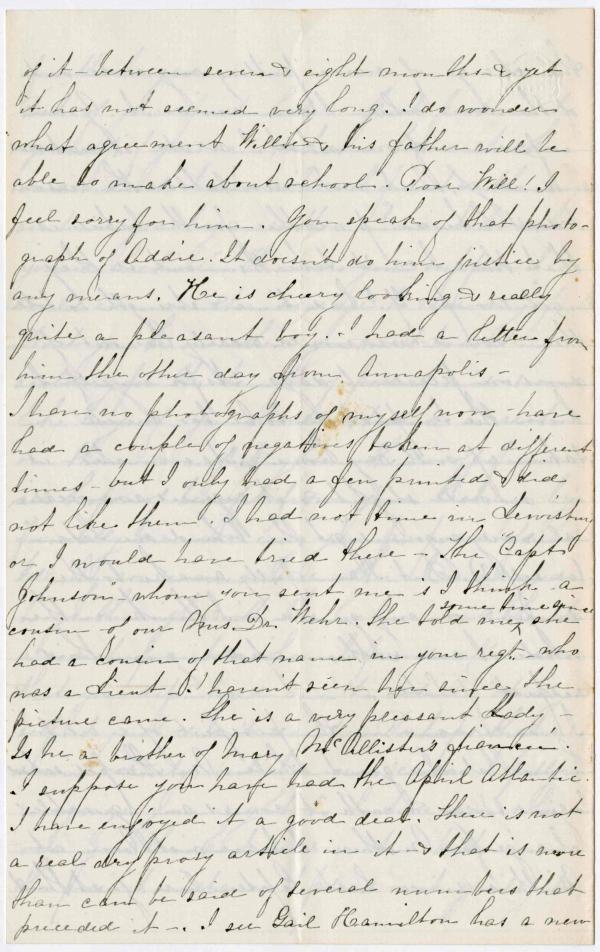 of it - between seven & eight months & yet
it has not seemed very long. I do wonder
what agreement Willie & his father will be
able to make about school. Poor Will! I
feel sorry for him. You speak of that photo-
graph of Addie. It doesn't do him justice by
any means. He is cheery looking & really
quite a pleasant boy. I had a letter from
him the other day from Annapolis -
I have no photographs of myself now - have
had a couple of negatives taken at different
times - but I only had a few printed & did
not like them. I had not time in Lewisburg
or I would have tried there - The "Capt.
Johnson" - whom you sent me is I think a
cousin of our Mrs. Dr. Wehr. She told me some time since she
had a cousin of that name in your regt. - who
was a Lieut - I haven't seen her since the
picture came. She is a very pleasant Lady -
Is he a brother of Mary McAllister's fiancé.
I suppose you have had the April Atlantic.
I have enjoyed it a good deal. There is not
a real dry prosy article in it - & that is more
than can be said of several numbers that
preceded it -. I see Gail Hamilton has a new